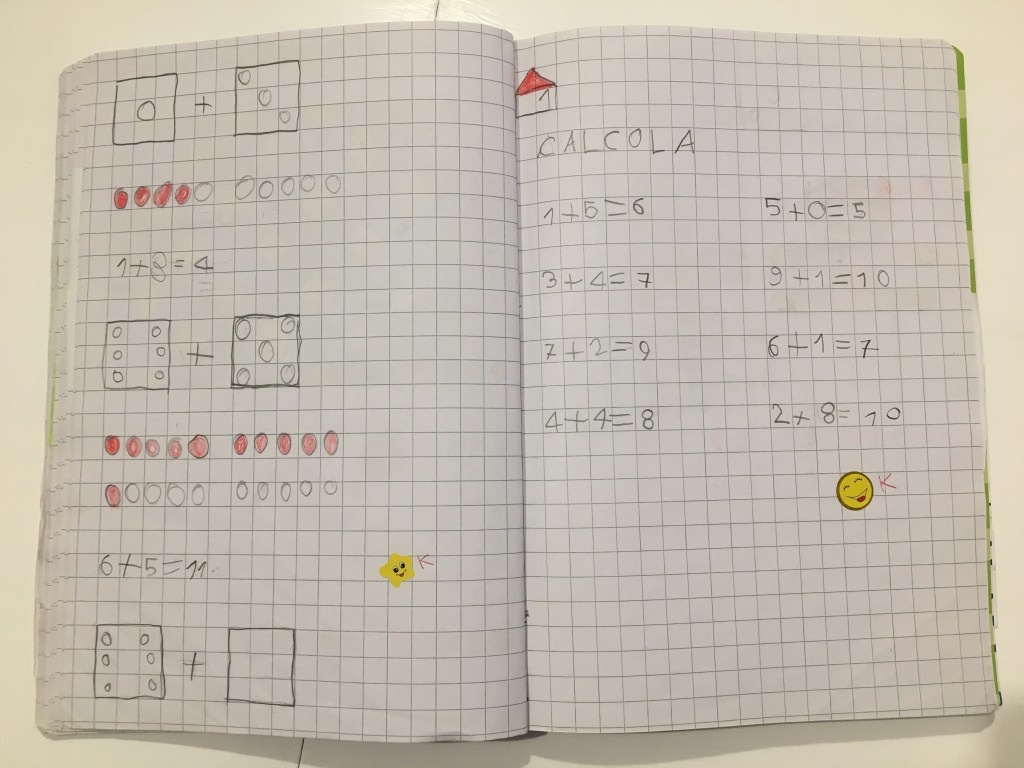 +
1+8=4
+
6+5=11
K
+
1
CALCOLA
1+5=6 5+0=5
3+4=7 9+1=10
7+2=9 6+1=7
4+4=8 2+8=10
K